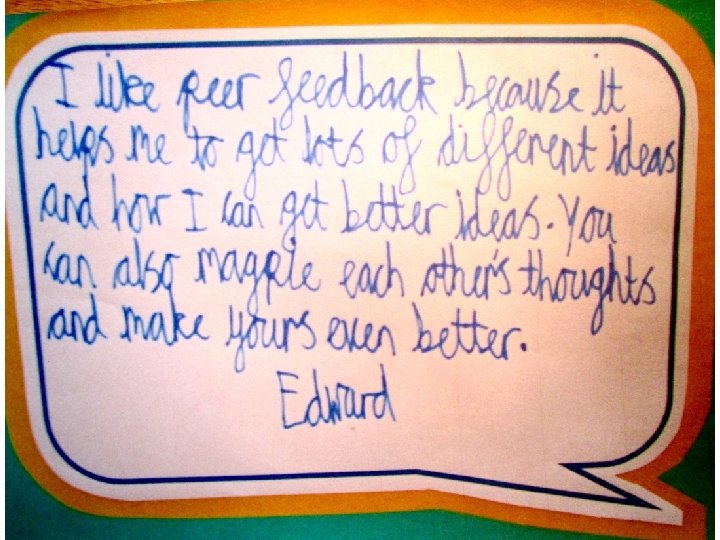 I like peer feedback because it
helps me to get lots of different ideas
and how I can get better ideas. You
can also magpie each other's thoughts
and make yours even better.
Edward